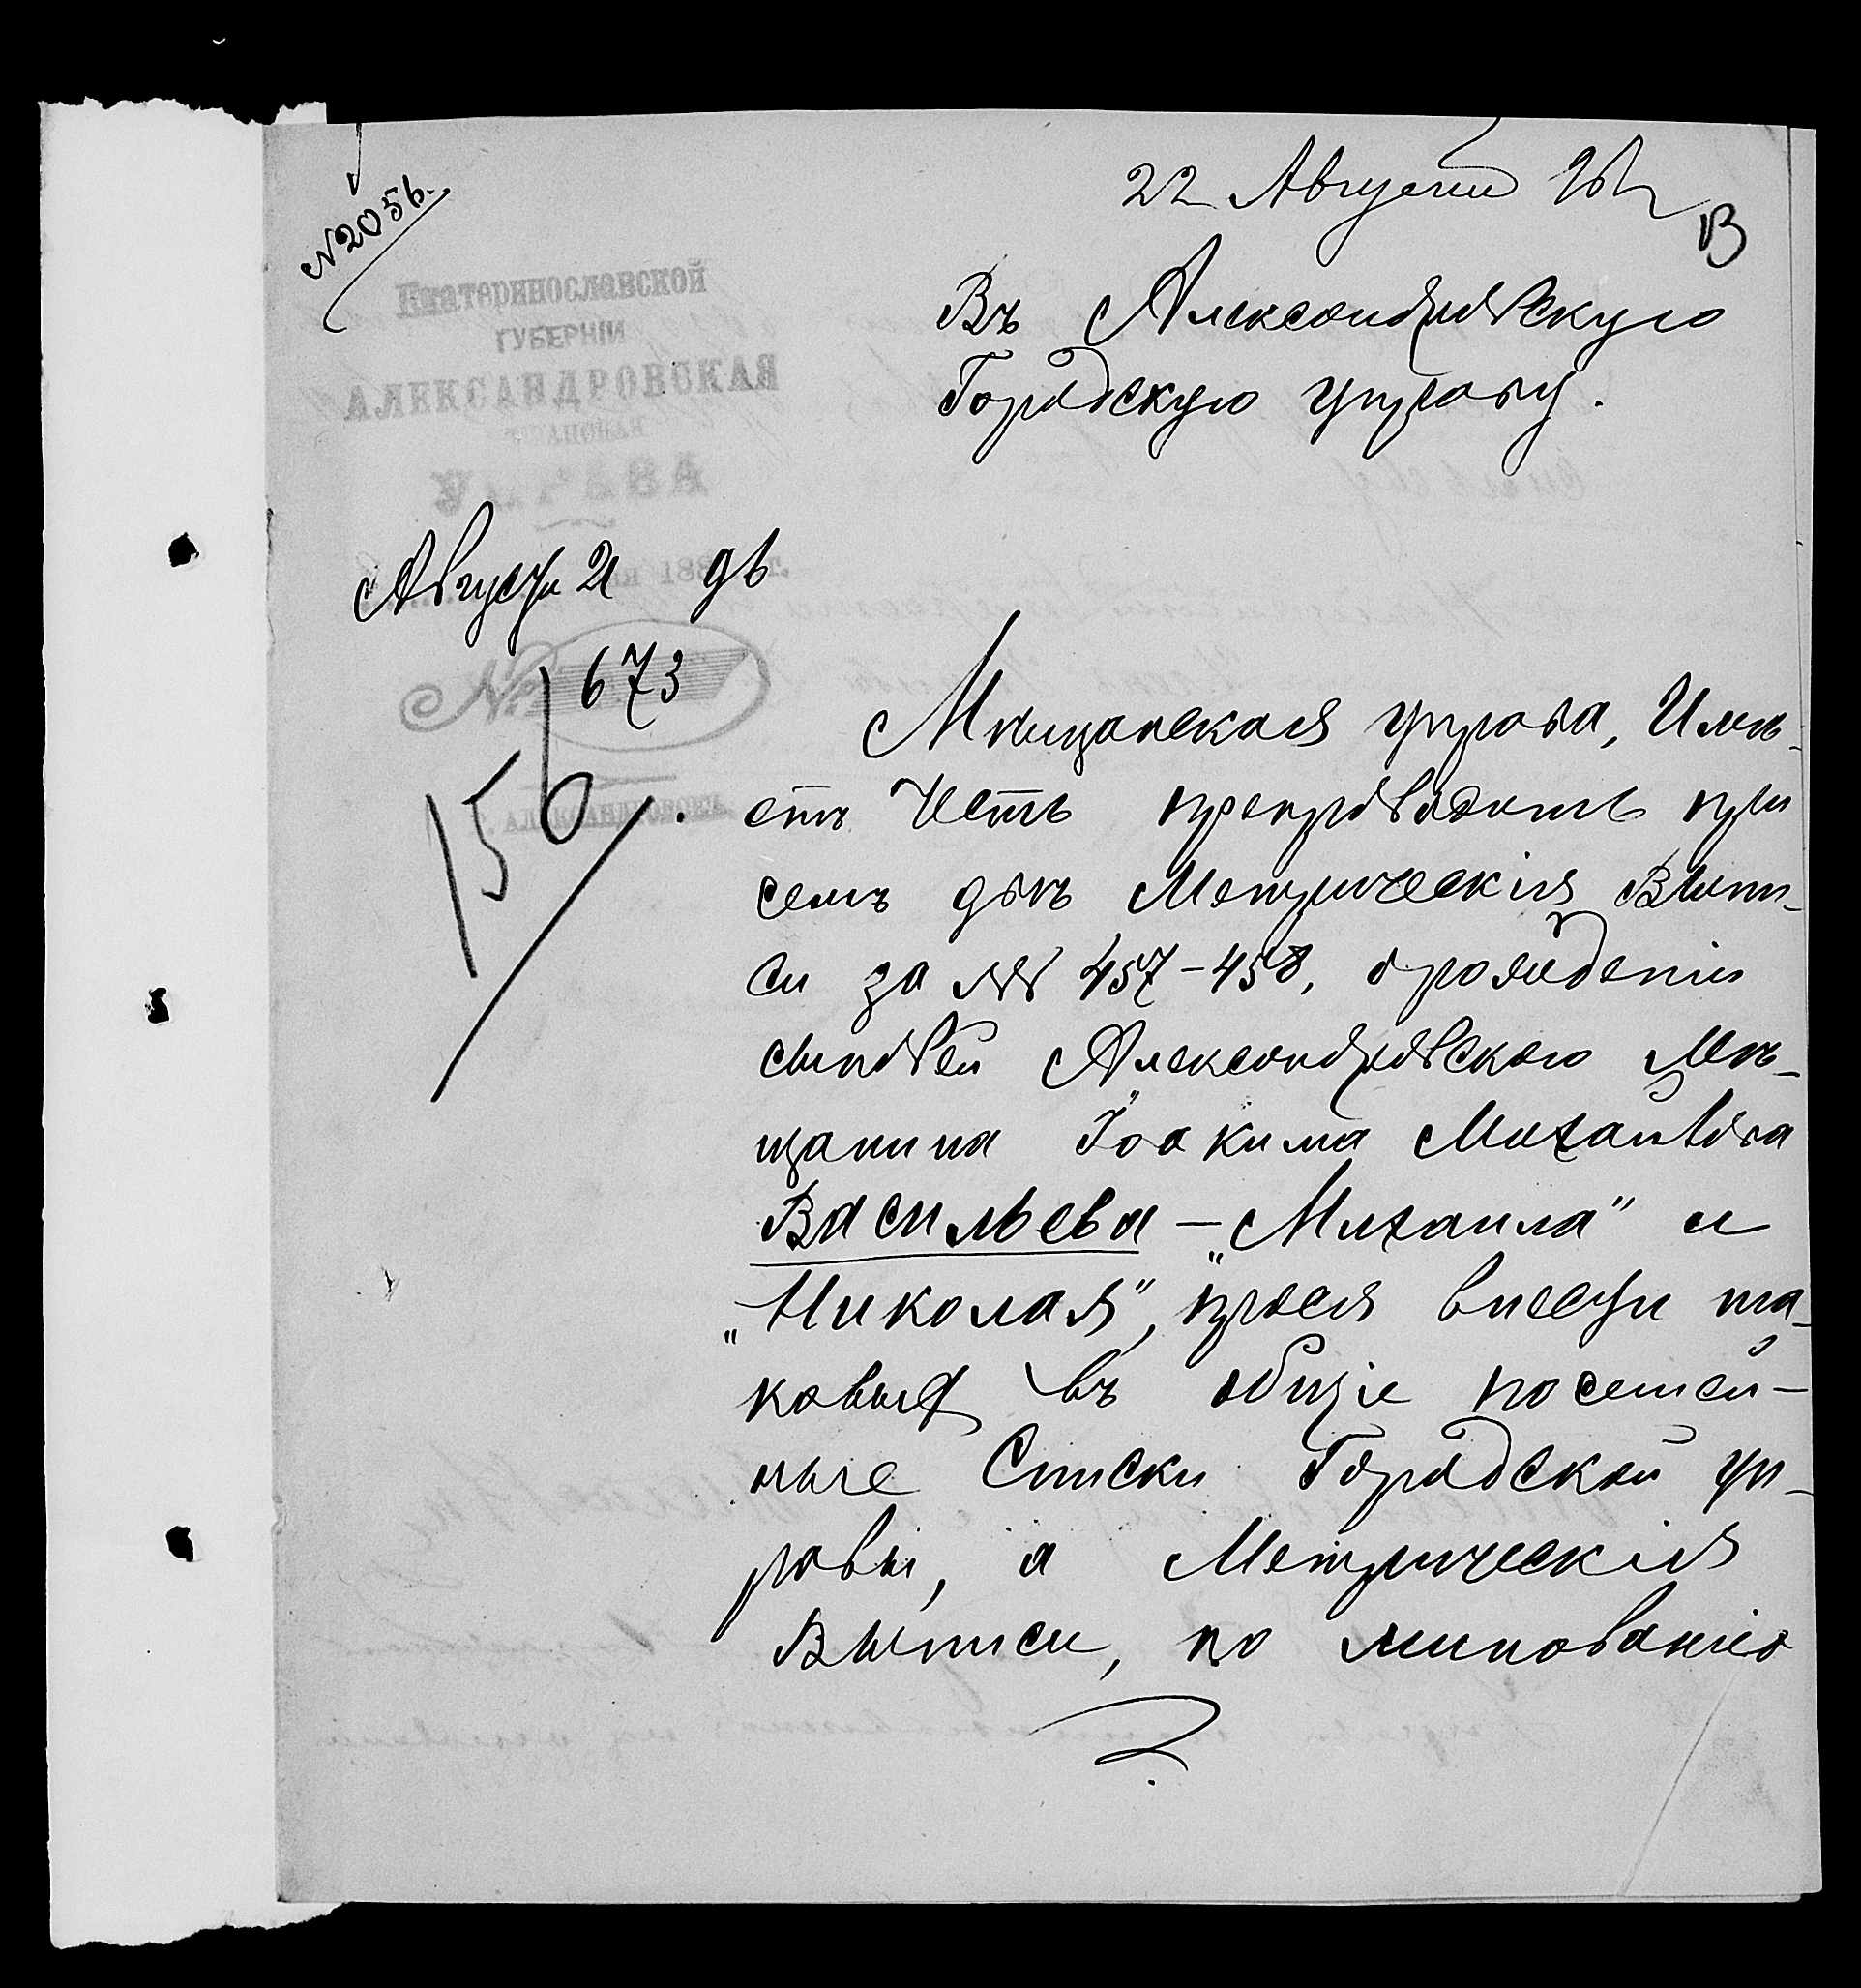 № 2056.
22 Августа 96 г
В
Екатеринославской
ГУБЕРНІИ
АЛЕКСАНДРОВСКАЯ
МѢЩАНСКАЯ
УПРАВА
Августа 21 дня 189 6 г.
№ 673
156.
г. АЛЕКСАНДРОВСКЪ.
Въ Александровскую
Городскую управу.
Мѣщанская управа, Имѣ-
етъ Честь препроводить при
семъ двѣ Метрическія Выпи-
си за №№ 457-458, о рожденіи
сыновей Александровского Мѣ-
щанина Іоакима Михайлова
Васильева — „Михаила" и
„Николая", прося внести та-
ковыя въ общіе посемей-
ные Списки Городской уп-
равы, а Метрическія
Выписи, по минованію